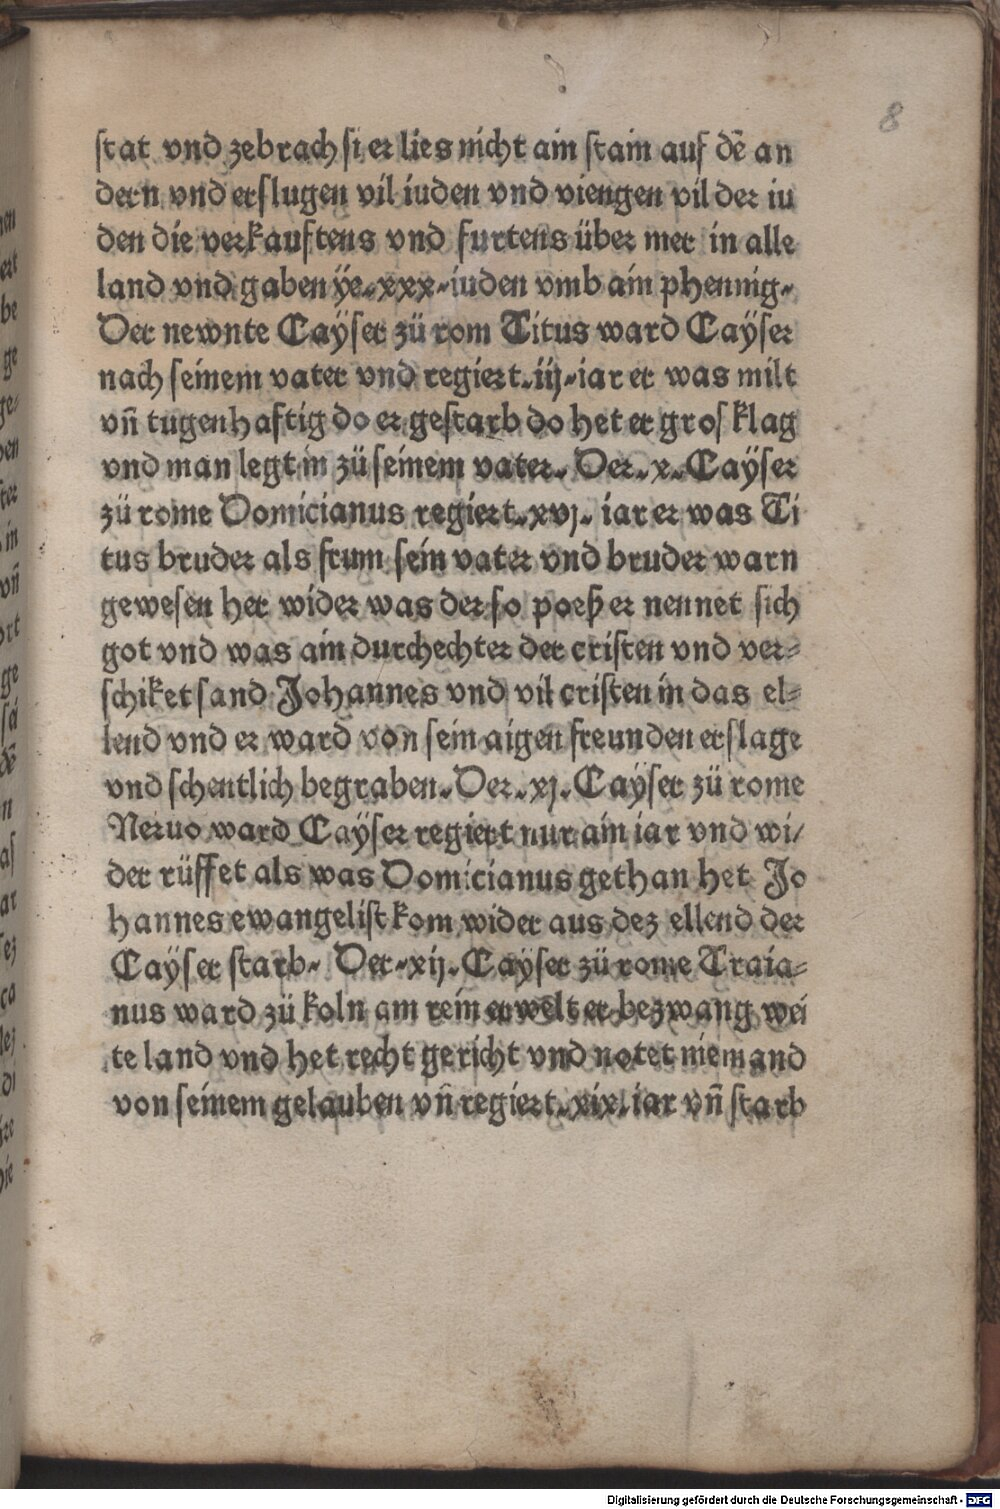 8
stat vnd zebrach si er lies nicht ain stain auf dē an
dern vnd erslugen vil iuden vnd viengen vil der iu
den die verkauftens vnd furtens über mer in alle
land vnd gaben ÿe.xxx.iuden vmb ain phennig.
Der newnte Caÿser zü rom Titus ward Caÿser
nach seinem vater vnd regiert.iij.iar er was milt
vn̄ tugenhaftig do er gestarb do het er gros klag
vnd man legt in zü seinem vater. Der.x.Caÿser
zü rome Domicianus regiert.xvj. iar er was Ti
tus bruder als frum sein vater vnd bruder warn
gewesen her wider was der so poeß er nennet sich
got vnd was ain durchechter der cristen vnd ver⸗
schiket sand Johannes vnd vil cristen in das el⸗
lend vnd er ward von sein aigen freunden erslage
vnd schentlich begraben. Der.xj.Caÿser zü rome
Neruo ward Caÿser regiert nur ain iar vnd wi/
der rüffet als was Domicianus gethan het Jo
hannes ewangelist kom wider aus dez ellend der
Caÿser starb. Der.xij.Caÿser zü rome Traia⸗
nus ward zü koln am rein erwelt er bezwang wei
te land vnd het recht gericht vnd notet niemand
von seinem gelauben vn̄ regiert.xix.iar vn̄ starb
Digitalisierung gefördert durch die Deutsche Forschungsgemeinschaft - DFG